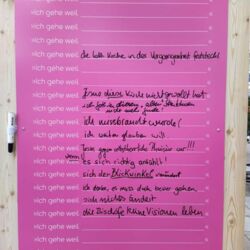 »Ich gehe weil
»Ich gehe weil
»Ich gehe weil
»Ich gehe weil die kath. Kirche in der Vergangenheit feststeckt
»Ich gehe weil
»Ich gehe weil Jesus diese Kirche nicht gewollt hat
»Ich gehe weil ich in diesen alten Strukturen nicht mehr
»Ich gehe weil Ich missbraucht wurde!
»Ich gehe weil ich weiter glauben will.
»Ich gehe weil Jesus gegen Physiker war!!!
»Ich gehe wenn es sich richtig anfühlt!
»Ich gehe weil sich der Blickwinkel verändert
»Ich gehe weil ich denke, es muss doch besser gehen,
»Ich gehe weil sich nichts ändert
»Ich gehe weil die Bischöfe keine Visionen leben
»Ich gehe weil
»Ich gehe weil